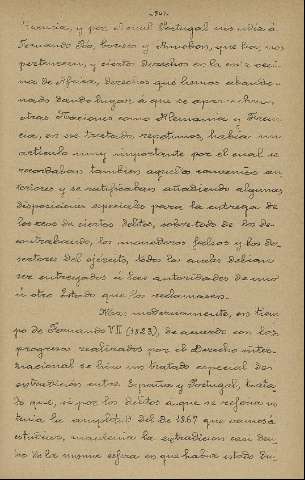 Francia, y por el cual Portugal nos cedía á
Fernando Póo, Corisco y Annobon, que hoy nos
pertenecen, y ciertos derechos en la costa occi-
de Africa, derechos que hemos abando-
nado dando lugar á que se aprovechen
otras Naciones como Alemania y Fran-
cia, en ese tratado, repetimos, habia un
artículo muy importante por el cual se
recordaban tambien aquellos convenios an-
teriores y se ratificaban añadiendo algunas
disposiciones especiales para la entrega de
los reos de ciertos delitos, sobre todo de los de
contrabando, los monederos falsos y los de-
sertores del ejército, todos los cuales debian
ser entregados á las autoridades de uno
ú otro Estado que los reclamasen.
Mas modernamente, en tiem-
po de Fernando VII (1823), de acuerdo con los
progresos realizados por el Derecho inter-
nacional se hizo un tratado especial de
extradición entre España y Portugal, trata-
do que, si por los delitos á que se referia no
tenia la amplitud del de 1867 que vamos á
estudiar, mantenia la extradicion con den-
tro de la misma esfera en que habia estado en-